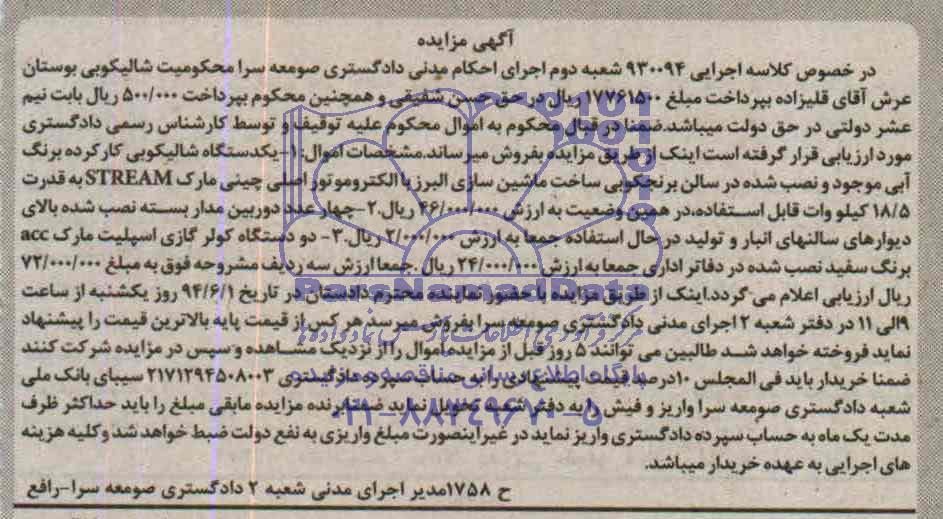 آگهی مزایده
در خصوص کلاسه اجرایی ۹۳۰۰۹۴ شعبه دوم اجرای احکام مدنی دادگستری صومعه سرا محکومیت شالیکوبی بوستان
عرش آقای قلیزاده بپرداخت مبلغ ۱۷۷۶۱۵۰۰ ریال در حق حسن شفیقی و همچنین محکوم بپرداخت ۵۰۰/۰۰۰ ریال بابت نیم
عشر دولتی در حق دولت میباشد.ضمنا در قبال محکوم به اموال محکوم علیه توقیف و توسط کارشناس رسمی دادگستری
مورد ارزیابی قرار گرفته است اینک از طریق مزایده بفروش میرساند.مشخصات اموال:۱-یکدستگاه شالیکوبی کارکرده برنگ
آبی موجود و نصب شده در سالن برنجکوبی ساخت ماشین سازی البرز با الکتروموتور اصلی چینی مارک STREAM به قدرت
۱۸/۵ کیلو وات قابل استفاده،در همین وضعیت به ارزش ۴۶/۰۰۰/۰۰۰ ریال.۲-چهار عدد دوربین مدار بسته نصب شده بالای
دیوارهای سالنهای انبار و تولید در حال استفاده جمعا به ارزش ۲/۰۰۰/۰۰۰ ریال.۳- دو دستگاه کولر گازی اسپلیت مارک acc
برنگ سفید نصب شده در دفاتر اداری جمعا به ارزش ۲۴/۰۰۰/۰۰۰ ریال .جمعا ارزش سه ردیف مشروحه فوق به مبلغ ۷۲/۰۰۰/۰۰۰
ریال ارزیابی اعلام می گردد.اینک از طریق مزایده با حضور نماینده محترم دادستان در تاریخ ۹۴/۶/۱ روز یکشنبه از ساعت
۹الی ۱۱ در دفتر شعبه ۲ اجرای مدنی دادگستری صومعه سرا بفروش میرسد هر کس از قیمت پایه بالاترین قیمت را پیشنهاد
نماید فروخته خواهد شد طالبین می توانند ۵ روز قبل از مزایده اموال را از نزدیک مشاهده و سپس در مزایده شرکت کنند
ضمنا خریدار باید فی المجلس ۱۰درصد قیمت پیشنهادی را به حساب سپرده دادگستری ۲۱۷۱۲۹۴۵۰۸۰۰۳ سیبای بانک ملی
شعبه دادگستری صومعه سرا واریز و فیش را به دفتر شعبه تحویل نماید ضمنا برنده مزایده مابقی مبلغ را باید حداکثر ظرف
مدت یک ماه به حساب سپرده دادگستری واریز نماید در غیر اینصورت مبلغ واریزی به نفع دولت ضبط خواهد شد و کلیه هزینه
های اجرایی به عهده خریدار میباشد.
ح ۱۷۵۸مدیر اجرای مدنی شعبه ۲ دادگستری صومعه سرا-رافع
ParsNamadData
پایگاه اطلاع رسانی مناقصه و مزایده
۰۲۱-۸۸۳۴۹۶۷۰-۵